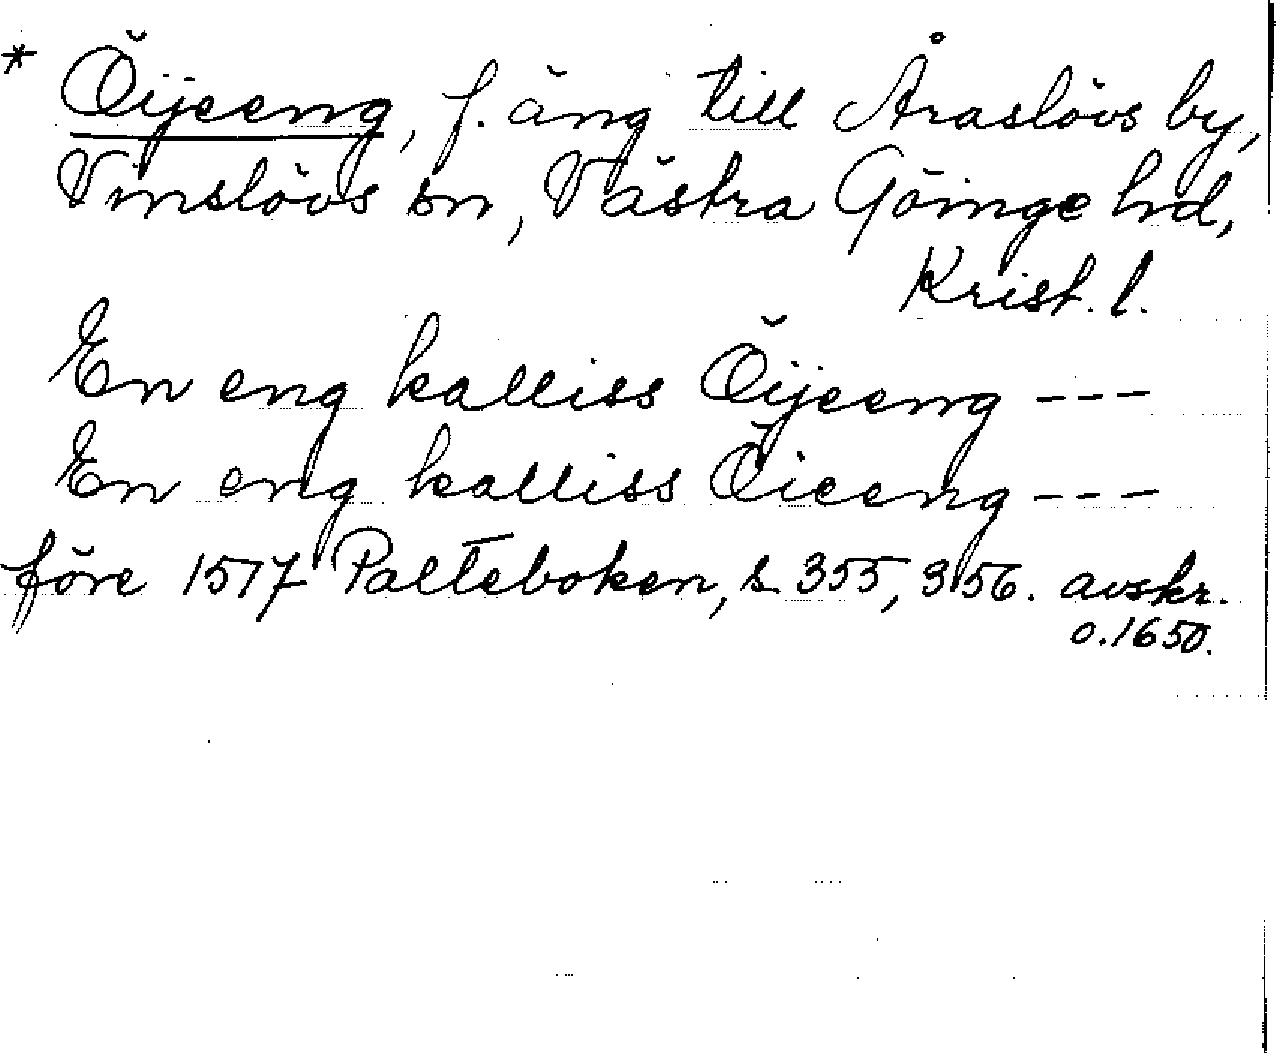 * Öijeeng, f. äng till Åraslövs by,
Vinslövs sn, Västra Göinge hd,
Krist. l.
En eng kalliss Öijeeng ---
En eng kalliss Öieeng ---
före 1517 Palteboken, s. 355, 356. avskr.
o. 1650.